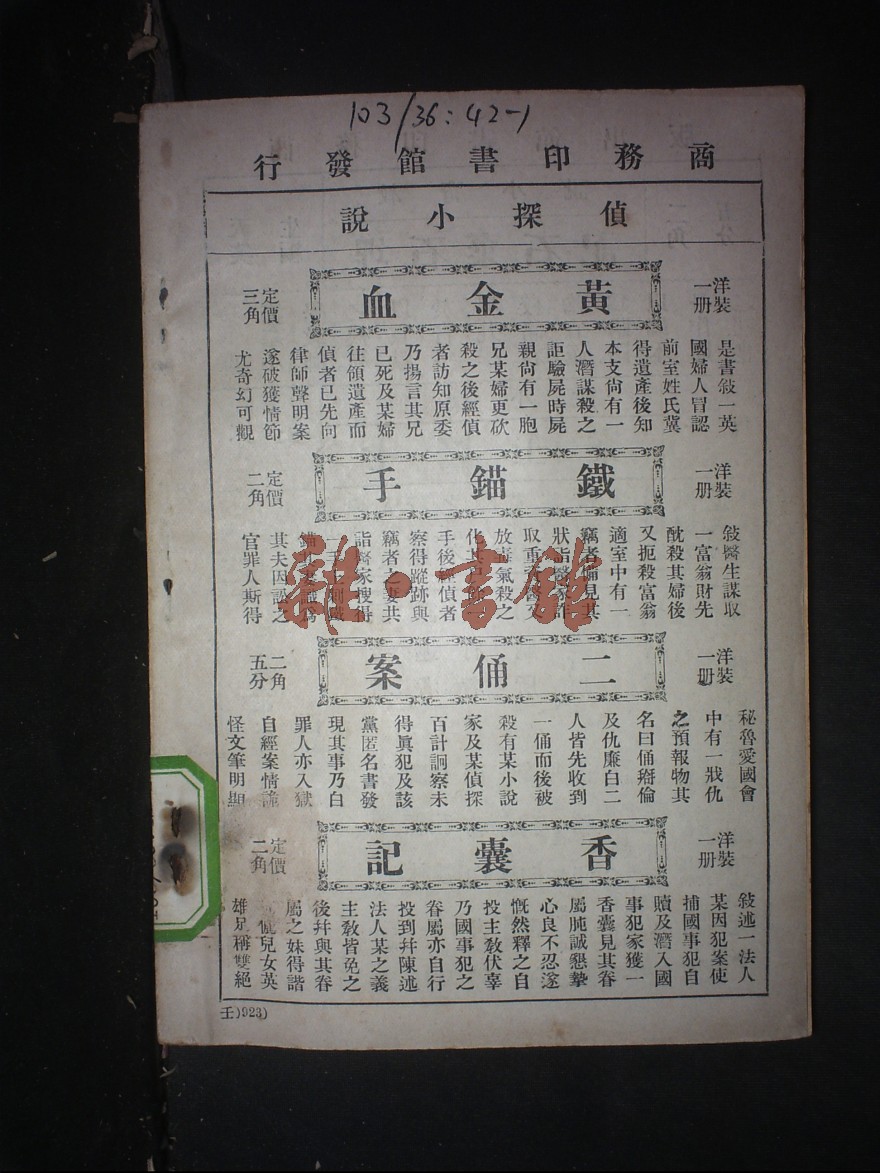 103/36:42-1
商務印書館發行
偵探小說
洋裝
一册
黃金血
定價
三角
是書敍一英
國婦人冒認
前室姓氏冀
得遺產後知
本支尙有一
人潛謀殺之
詎驗屍時屍
親尙有一胞
兄某婦更砍
殺之後經偵
者訪知原委
乃揚言其兄
已死及某婦
往領遺產而
偵者已先向
律師聲明案
遂破獲情節
尤奇幻可觀
洋裝
一册
鐵錨手
定價
二角
敍醫生謀取
一富翁財先
酖殺其婦後
又扼殺富翁
適室中有一
竊者偷見其
狀詣醫家詐
取重
放毒氣殺之
化其
手後 偵者
察得蹤跡與
竊者之妻共
詣醫家搜得
手
錨
其夫因訟之
官罪人斯得
洋裝
一册
二俑案
二角
五分
秘魯愛國會
中有一戕仇
之預報物其
名曰俑搿倫
及仇廉白二
人皆先收到
一俑而後被
殺有某小說
家及某偵探
百計詗察未
得眞犯及該
黨匿名書發
現其事乃白
罪人亦入獄
自經案情詭
怪文筆明顯
洋裝
一册
香囊記
定價
二角
敍述一法人
某因犯案使
捕國事犯自
贖及潛入國
事犯家獲一
香囊見其眷
屬肫誠懇摯
心良不忍遂
慨然釋之自
投主敎伏辜
乃國事犯之
眷屬亦自行
投到幷陳述
法人某之義
主敎皆免之
後幷與其眷
屬之妹得諧
儷兒女英
雄足稱雙絕
壬)923)
雜·書館